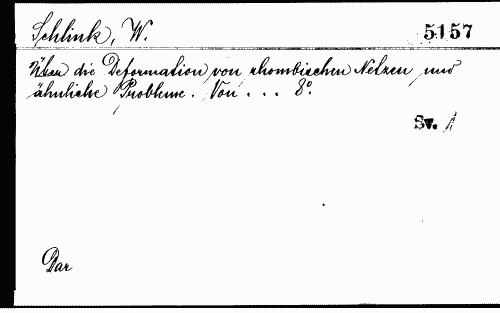 Schlink, W. 5157
Über die Deformation von rhombischen Netzen und
ähnliche Probleme. Von . . . 8°.
Sv. A
Dar